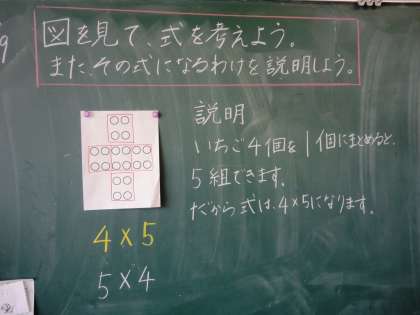 9
図を見て、式を考えよう。
また、その式になるわけを説明しよう。
説明
いちご4個を1個にまとめると、
5組できます。
だから式は、4×5になります。
4×5
5×4